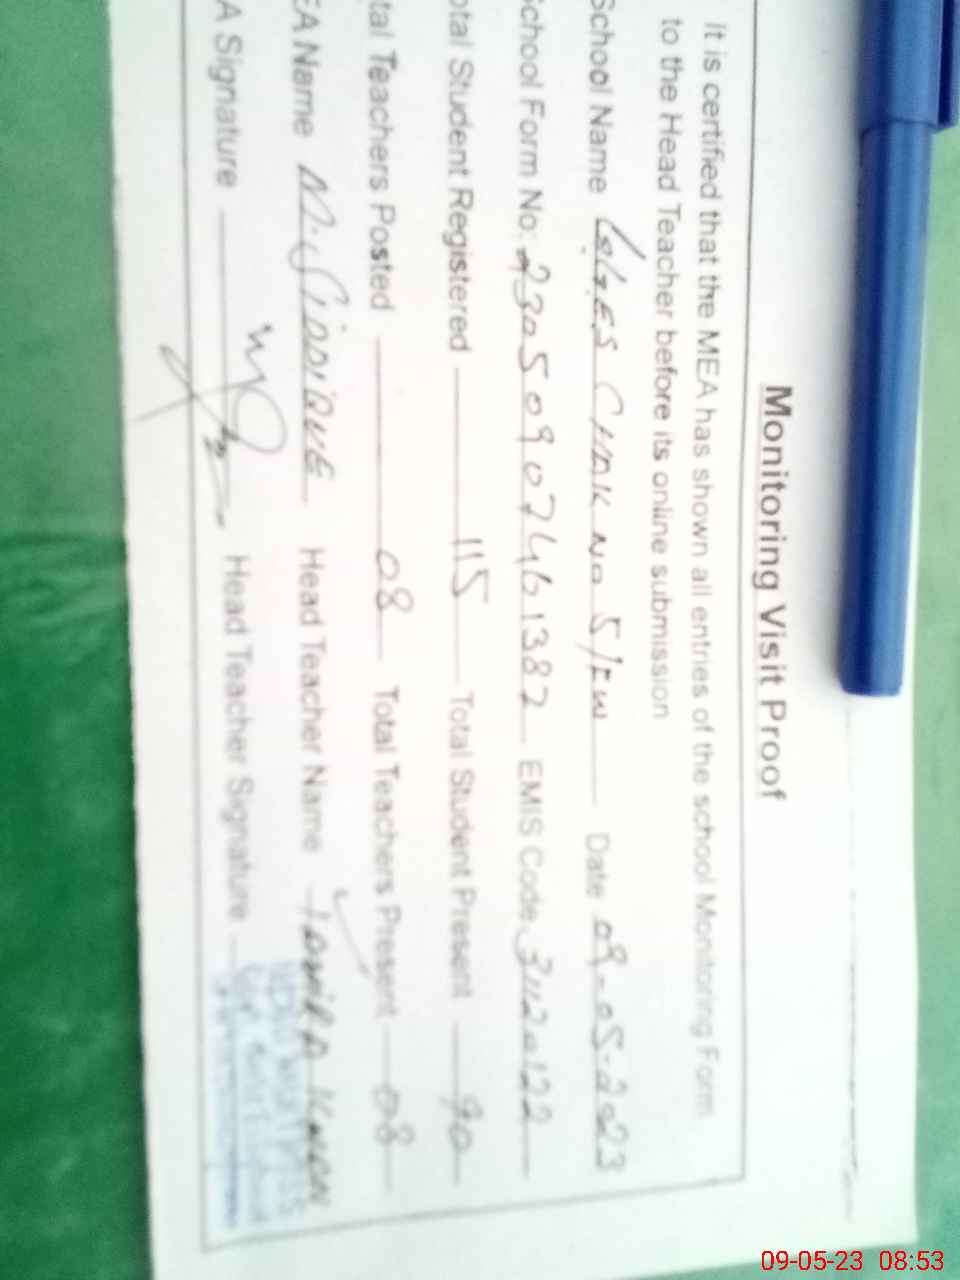 Monitoring Visit Proof
It is certified that the MEA has shown all entries of the school Monitoring Form
to the Head Teacher before its online submission
School Name GGES CHAK NO 5/FW Date 09-05-2023
School Form No. 23050907461382 EMIS Code 31120122
otal Student Registered 115 Total Student Present 90
tal Teachers Posted 08 Total Teachers Present 08
EA Name M. SIDDIQUE Head Teacher Name
A Signature Head Teacher Signature
09-05-23 08:53